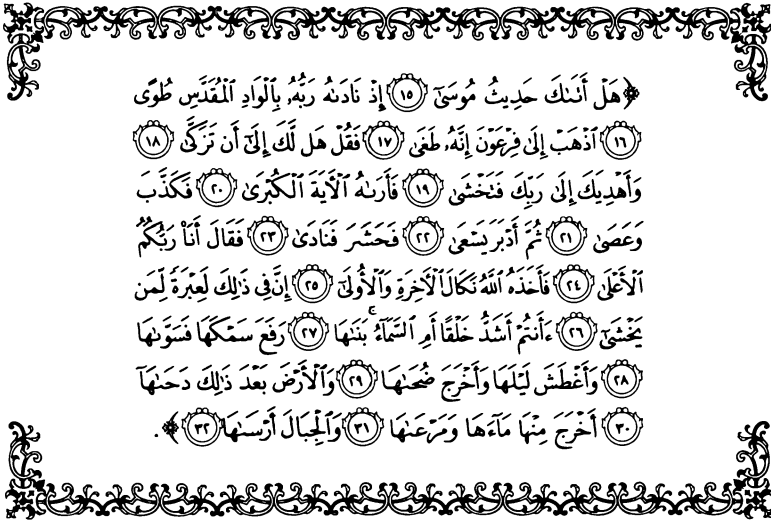 ﴿هَلْ أَتَىٰكَ حَدِيثُ مُوسَىٰٓ ١٥ إِذْ نَادَىٰهُ رَبُّهُۥ بِٱلْوَادِ ٱلْمُقَدَّسِ طُوًى
١٦ ٱذْهَبْ إِلَىٰ فِرْعَوْنَ إِنَّهُۥ طَغَىٰ ١٧ فَقُلْ هَل لَّكَ إِلَىٰٓ أَن تَزَكَّىٰ ١٨
وَأَهْدِيَكَ إِلَىٰ رَبِّكَ فَتَخْشَىٰ ١٩ فَأَرَىٰهُ ٱلْأَيَةَ ٱلْكُبْرَىٰ ٢٠ فَكَذَّبَ
وَعَصَىٰ ٢١ ثُمَّ أَدْبَرَ يَسْعَىٰ ٢٢ فَحَشَرَ فَنَادَىٰ ٢٣ فَقَالَ أَنَا۠ رَبُّكُمُ
ٱلْأَعْلَىٰ ٢٤ فَأَخَذَهُ ٱللَّهُ نَكَالَ ٱلْأَخِرَةِ وَٱلْأُولَىٰٓ ٢٥ إِنَّ فِى ذَٰلِكَ لَعِبْرَةً لِّمَن
يَخْشَىٰٓ ٢٦ ءَأَنتُمْ أَشَدُّ خَلْقًا أَمِ ٱلسَّمَآءُ ۚ بَنَىٰهَا ٢٧ رَفَعَ سَمْكَهَا فَسَوَّىٰهَا
٢٨ وَأَغْطَشَ لَيْلَهَا وَأَخْرَجَ ضُحَىٰهَا ٢٩ وَٱلْأَرْضَ بَعْدَ ذَٰلِكَ دَحَىٰهَآ
٣٠ أَخْرَجَ مِنْهَا مَآءَهَا وَمَرْعَىٰهَا ٣١ وَٱلْجِبَالَ أَرْسَىٰهَا ٣٢﴾.